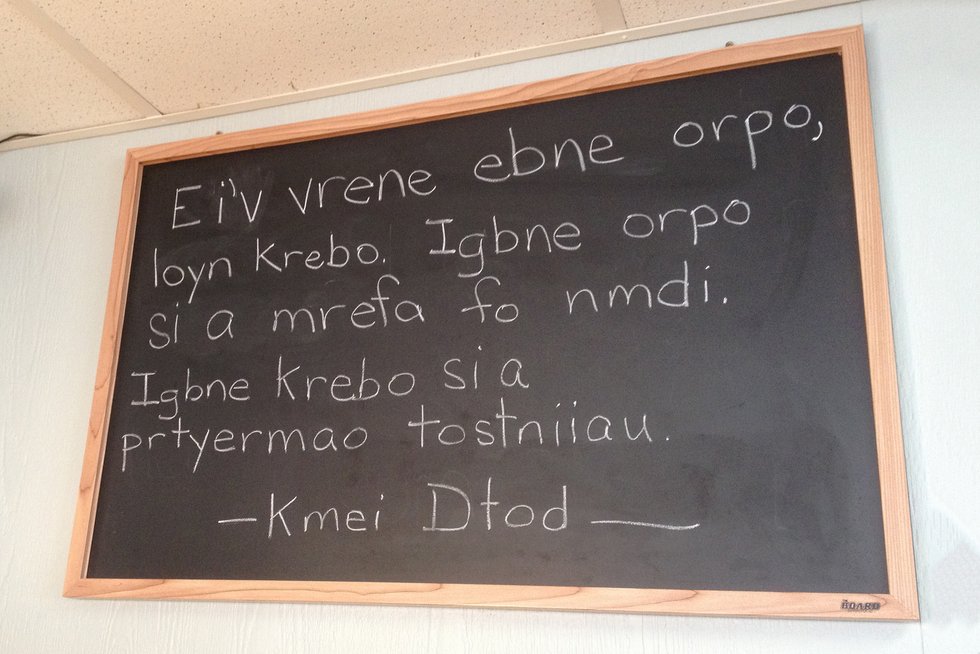 E i'v vrene ebne orpo,
loyn krebo. Igbne orpo
si a mrefa fo nmdi.
Igbne krebo si a
prtyermao tostniiau.
—Kmei Dtod—
BOARD